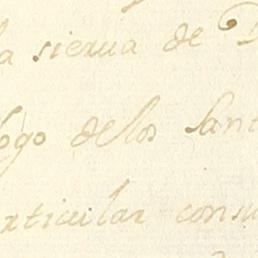 la sierua de D
logo de los Sant
articular consu